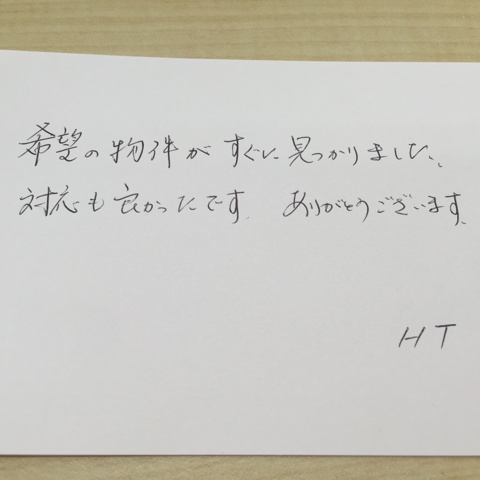 希望の物件がすぐに見つかりました、
対応も良かったです。 ありがとうございます。
HT